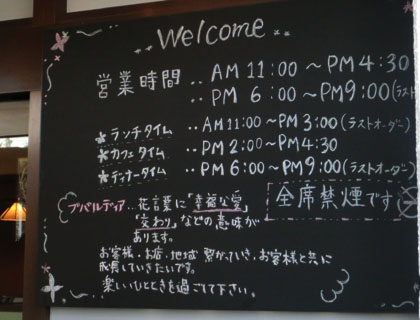 Welcome
営業時間 ‥ AM 11:00 ～PM 4:30
‥ PM 6:00 ～PM9:00(ラスト
ランチタイム ‥ AM 11:00～PM 3:00(ラストオーダー)
カフェタイム ‥ PM 2:00～PM4:30
ディナータイム ‥ PM 6:00～PM9:00(ラストオーダー)
全席禁煙です
ブバルディア‥花言葉に「幸福な愛」
「交わり」などの意味が
あります。
お客様・お店・地域 繋がっていき、お客様と共に
成長していきたいです。
楽しいひとときを過ごして下さい。